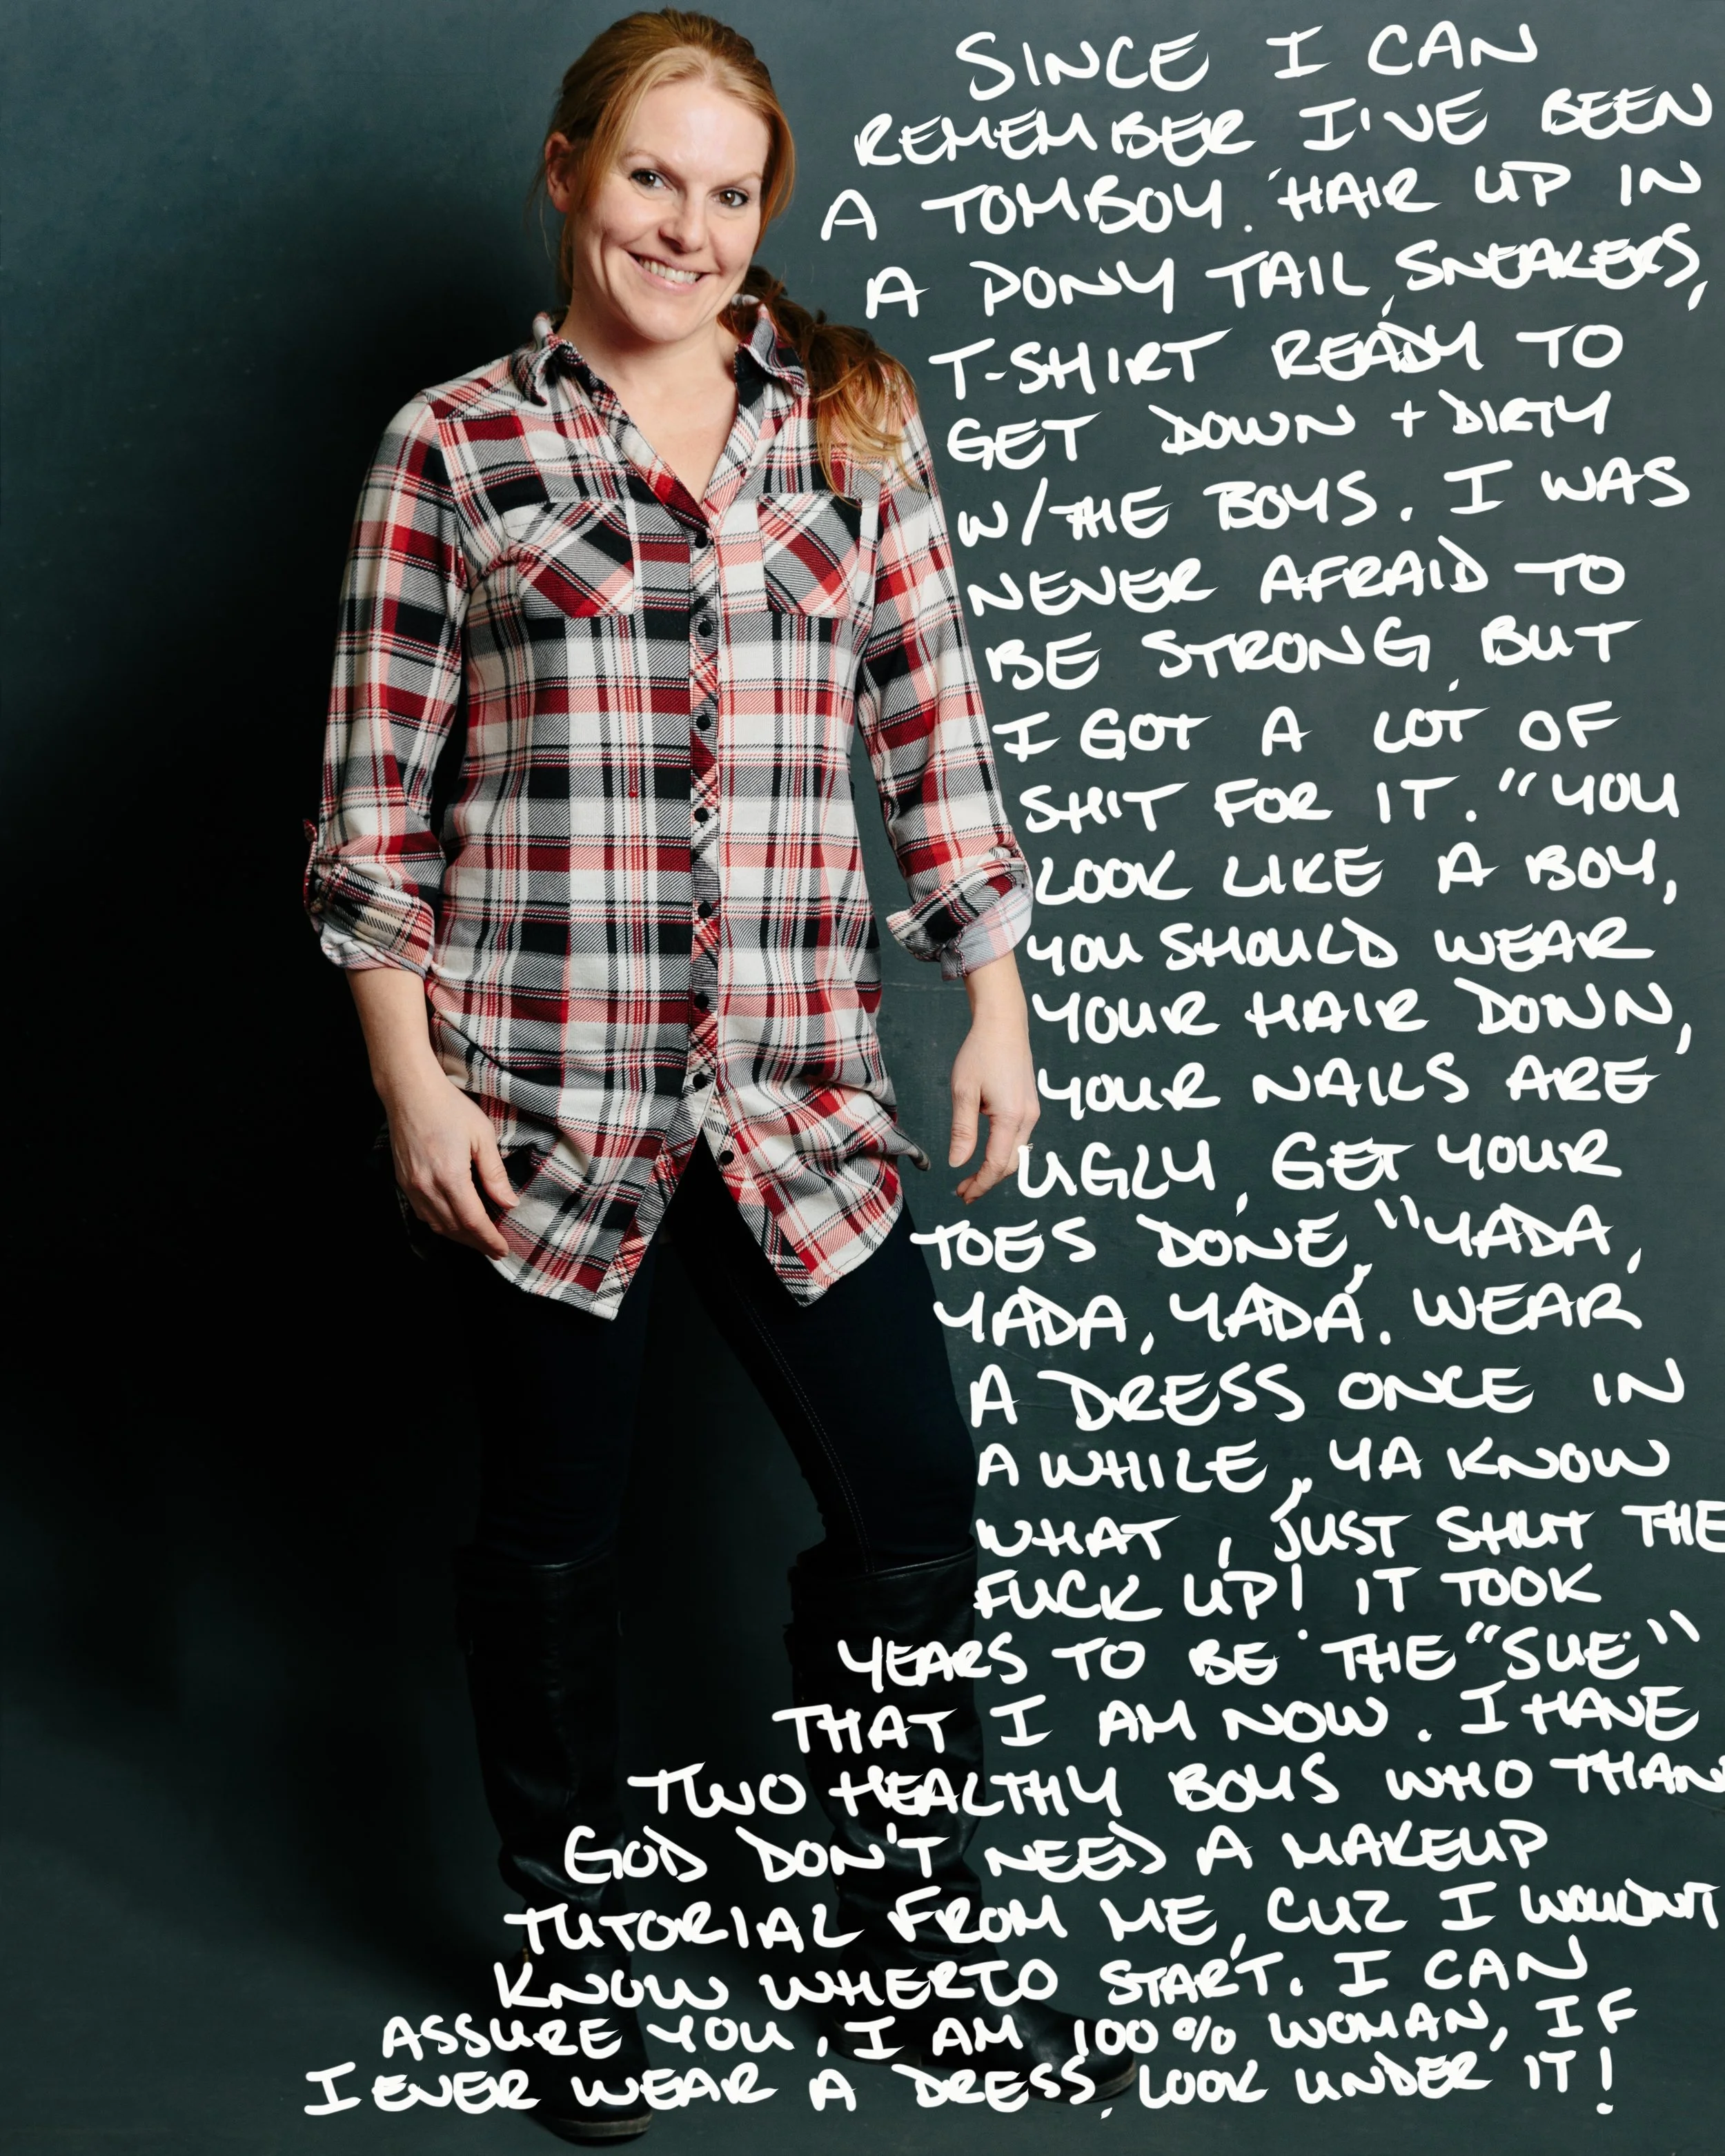 SINCE I CAN
REMEMBER I'VE BEEN
A TOMBOY. HAIR UP IN
A PONY TAIL, SNEAKERS,
T-SHIRT READY TO
GET DOWN + DIRTY
W/THE BOYS. I WAS
NEVER AFRAID TO
BE STRONG, BUT
I GOT A LOT OF
SHIT FOR IT. "YOU
LOOK LIKE A BOY,
YOU SHOULD WEAR
YOUR HAIR DOWN,
YOUR NAILS ARE
UGLY, GET YOUR
TOES DONE," YADA,
YADA, YADA. WEAR
A DRESS ONCE IN
A WHILE," YA KNOW
WHAT, JUST SHUT THE
FUCK UP! IT TOOK
YEARS TO BE THE "SUE"
THAT I AM NOW. I HAVE
TWO HEALTHY BOYS WHO THAN
GOD DON'T NEED A MAKEUP
TUTORIAL FROM ME, CUZ I WOULDN'T
KNOW WHERTO START. I CAN
ASSURE YOU, I AM 100% WOMAN, IF
I EVER WEAR A DRESS, LOOK UNDER IT!